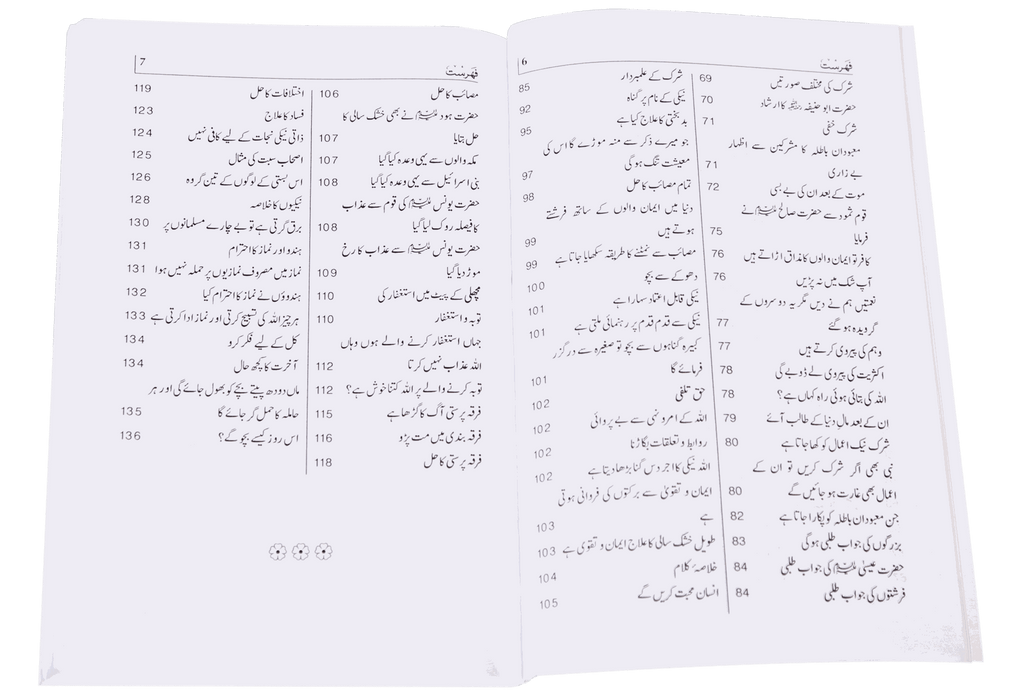 6
فہرست
شرک کی مختلف صورتیں 69
حضرت ابو حنیفہ رحمہ اللہ کا ارشاد 70
شرک خفی 71
معبودان باطلہ کا مشرکین سے اظہار
بے زاری 71
موت کے بعد ان کی بے بسی 72
قوم ثمود سے حضرت صالح علیہ السلام نے
فرمایا 75
کافر تو ایمان والوں کا مذاق اڑاتے ہیں 76
آپ شک میں نہ پڑیں 76
نعمتیں ہم نے دیں مگر یہ دوسروں کے
گرویدہ ہو گئے 77
وہم کی پیروی کرتے ہیں 77
اکثریت کی پیروی لے ڈوبے گی 78
اللہ کی بتائی ہوئی راہ کہاں ہے؟ 78
ان کے بعد مال دنیا کے طالب آئے 79
شرک نیک اعمال کو کھا جاتا ہے 80
نبی بھی اگر شرک کریں تو ان کے
اعمال بھی غارت ہو جائیں گے 80
جن معبودان باطلہ کو پکارا جاتا ہے 82
بزرگوں کی جواب طلبی ہوگی 83
حضرت عیسیٰ علیہ السلام کی جواب طلبی 84
فرشتوں کی جواب طلبی 84
شرک کے علمبردار 85
نیکی کے نام پر گناہ 92
بدبختی کا علاج کیا ہے 95
جو میرے ذکر سے منہ موڑے گا اس کی
معیشت تنگ ہوگی 97
تمام مصائب کا حل 98
دنیا میں ایمان والوں کے ساتھ فرشتے
ہوتے ہیں 99
مصائب سے نمٹنے کا طریقہ سکھایا جاتا ہے 99
دھوکے سے بچو 100
نیکی قابل اعتماد سہارا ہے 101
نیکی سے قدم قدم پر رہنمائی ملتی ہے 101
کبیرہ گناہوں سے بچو تو صغیرہ سے درگزر
فرمائے گا 101
حق تلفی 102
اللہ کے امر و نہی سے بے پروائی 102
روابط و تعلقات بگاڑنا 102
اللہ نیکی کا اجر دس گنا بڑھا دیتا ہے 102
ایمان و تقویٰ سے برکتوں کی فراوانی ہوتی
ہے 103
طویل خشک سالی کا علاج ایمان و تقویٰ ہے 103
خلاصۂ کلام 104
انسان محبت کریں گے 105
7
فہرست
مصائب کا حل 106
حضرت ہود علیہ السلام نے بھی خشک سالی کا
حل بتایا 107
مکہ والوں سے یہی وعدہ کیا گیا 107
بنی اسرائیل سے یہی وعدہ کیا گیا 108
حضرت یونس علیہ السلام کی قوم سے عذاب
کا فیصلہ روک لیا گیا 108
حضرت یونس علیہ السلام سے عذاب کا رخ
موڑ دیا گیا 109
مچھلی کے پیٹ میں استغفار کی 110
توبہ و استغفار 110
جہاں استغفار کرنے والے ہوں وہاں
اللہ عذاب نہیں کرتا 112
توبہ کرنے والے پر اللہ کتنا خوش ہے؟ 112
فرقہ پرستی آگ کا گڑھا ہے 115
فرقہ بندی میں مت پڑو 116
فرقہ پرستی کا حل 118
اختلافات کا حل 119
فساد کا علاج 123
ذاتی نیکی نجات کے لیے کافی نہیں 124
اصحاب سبت کی مثال 125
اس بستی کے لوگوں کے تین گروہ 126
نیکیوں کا خلاصہ 128
برق گرتی ہے تو بے چارے مسلمانوں پر 130
ہندو اور نماز کا احترام 131
نماز میں مصروف نمازیوں پر حملہ نہیں ہوا 131
ہندوؤں نے نماز کا احترام کیا 132
ہر چیز اللہ کی تسبیح کرتی اور نماز ادا کرتی ہے 133
کل کے لیے فکر کرو 134
آخرت کا کچھ حال 134
ماں دودھ پیتے بچے کو بھول جائے گی اور ہر
حاملہ کا حمل گر جائے گا 135
اس روز کیسے بچو گے؟ 136